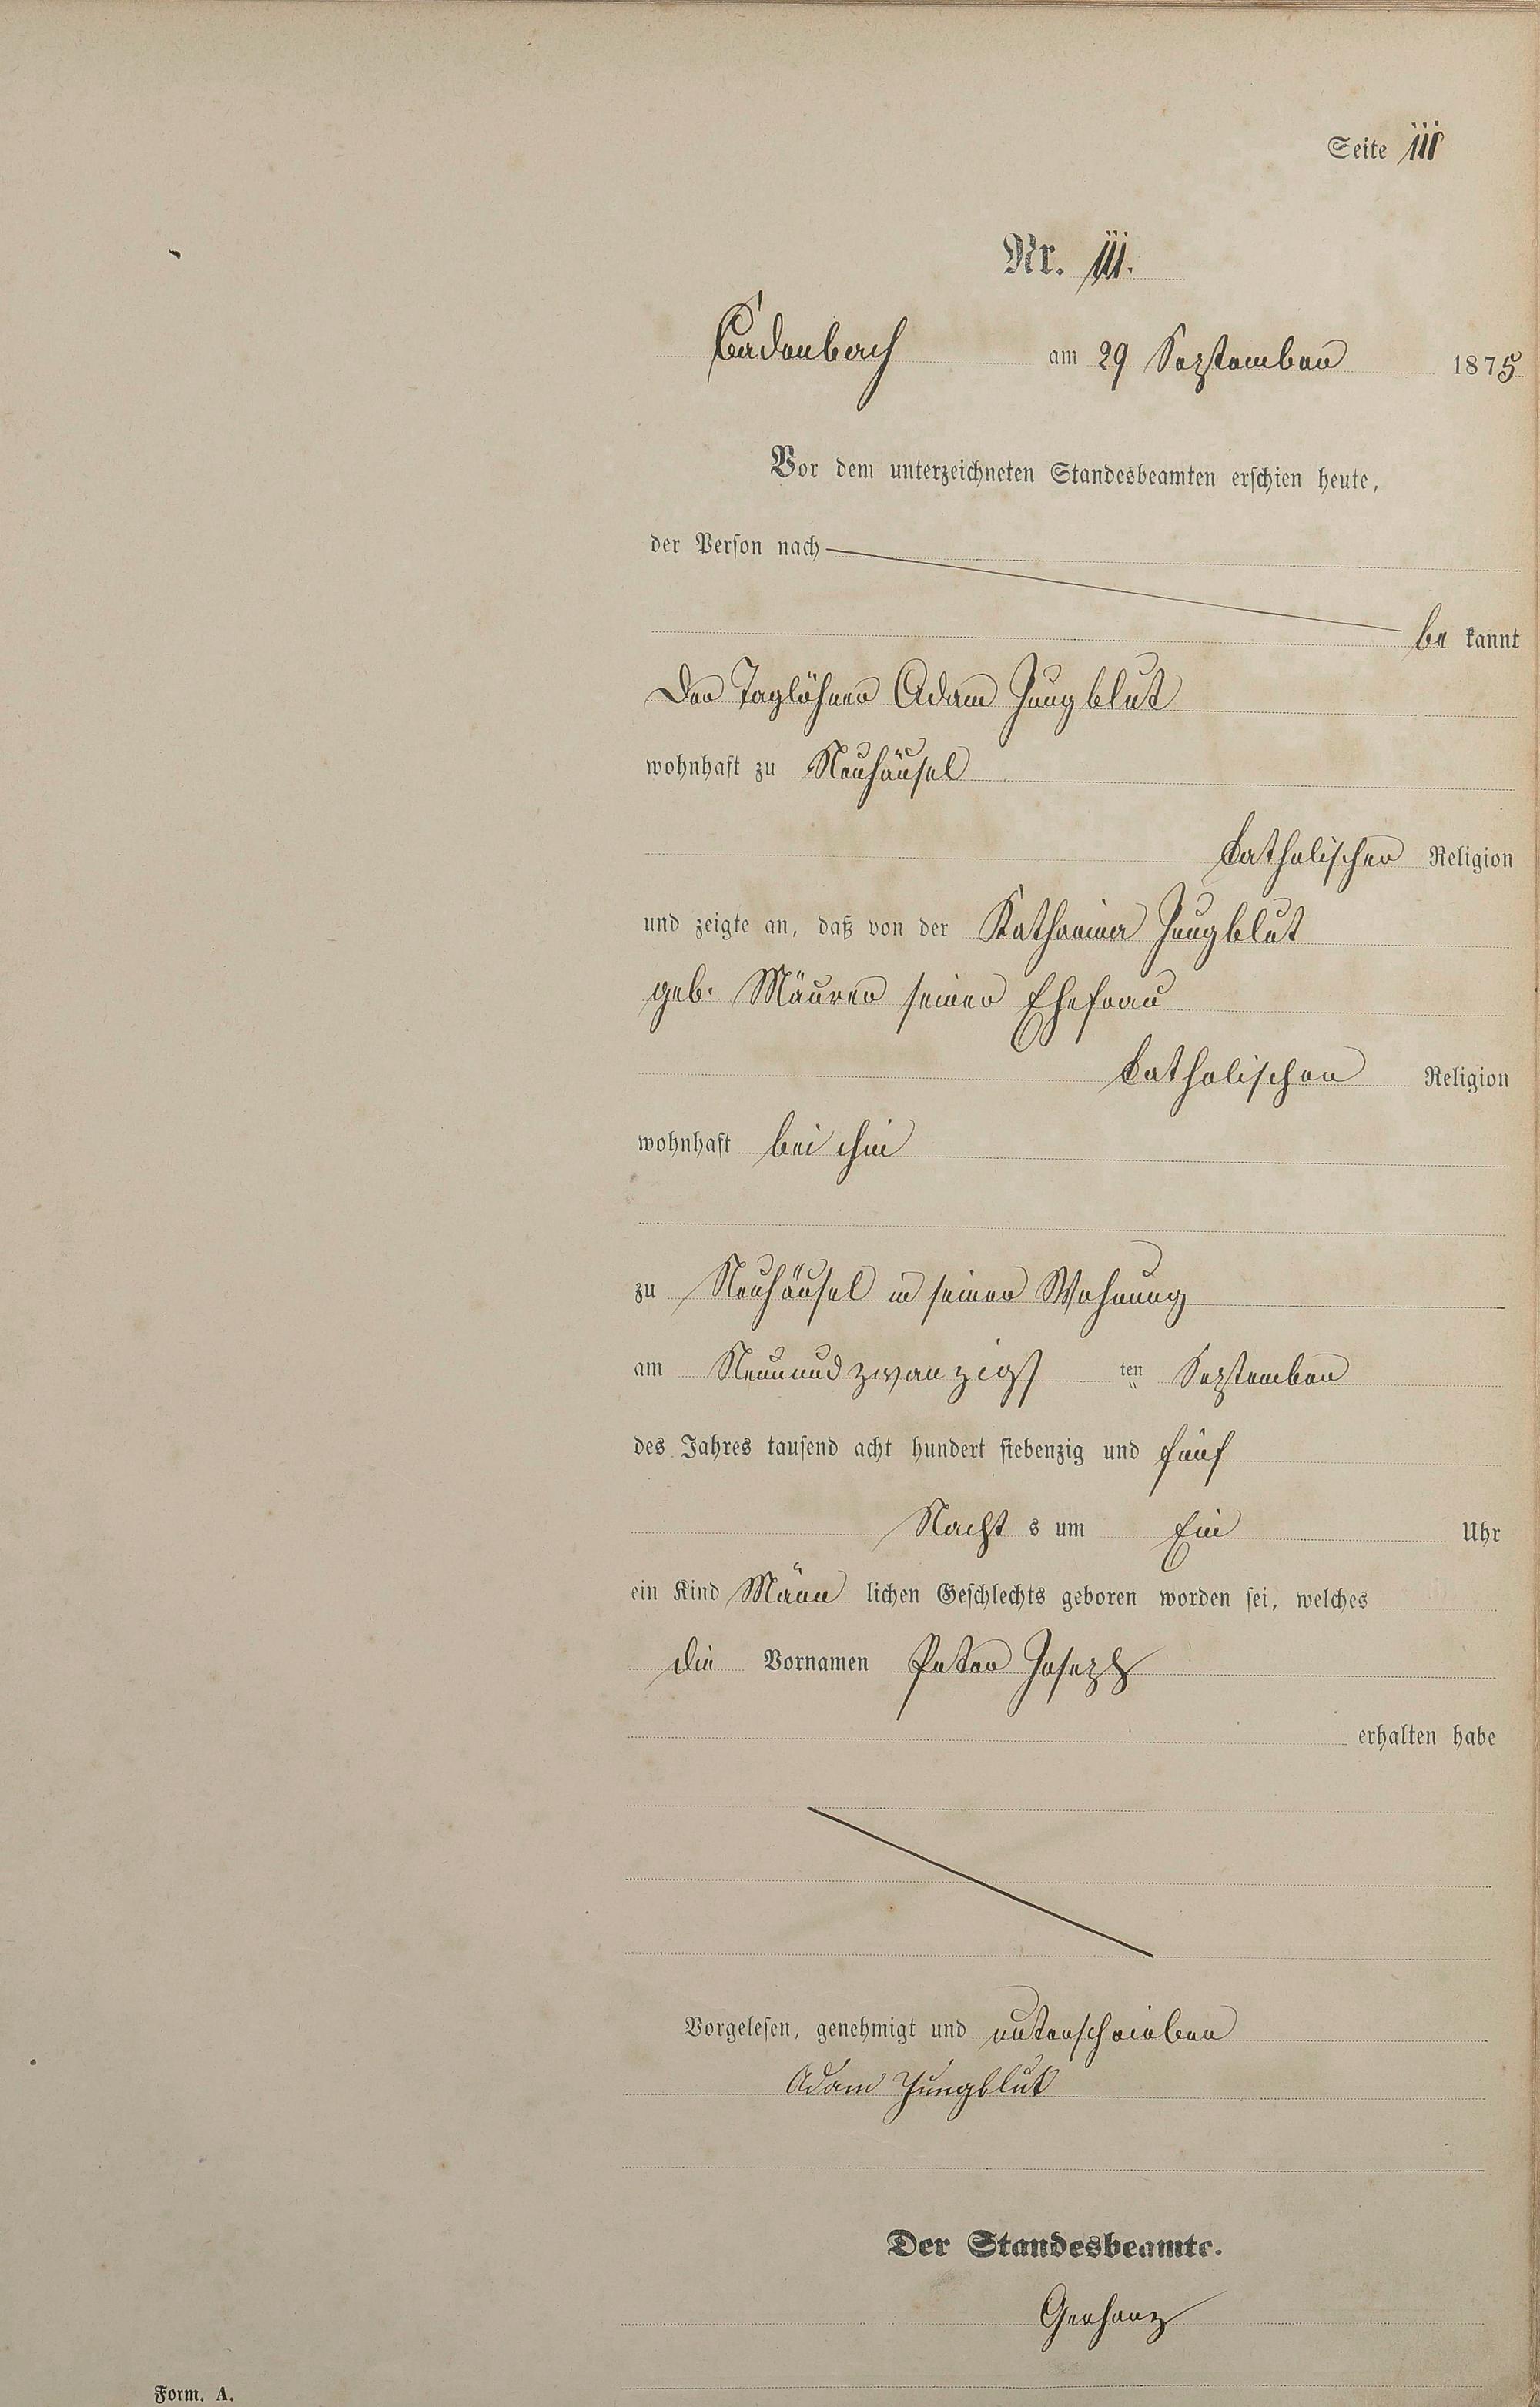 Seite III
Nr. III.
Cadenbach am 29 September 1875
Vor dem unterzeichneten Standesbeamten erschien heute,
der Person nach
be kannt
Der Taglöhner Adam Jungblut
wohnhaft zu Neuhäusel
katholischer Religion
und zeigte an, daß von der Katharina Jungblut
geb. Mäurer seiner Ehefrau
katholischen Religion
wohnhaft bei ihm
zu Neuhäusel in seiner Wohnung
am Neunundzwanzigst ten September
des Jahres tausend acht hundert siebenzig und fünf
Nacht s um Ein Uhr
ein Kind Männ lichen Geschlechts geboren worden sei, welches
die Vornamen Peter Joseph
erhalten habe
Vorgelesen, genehmigt und unterschrieben
Adam Jungblut
Der Standesbeamte.
Gerhanz
Form. A.